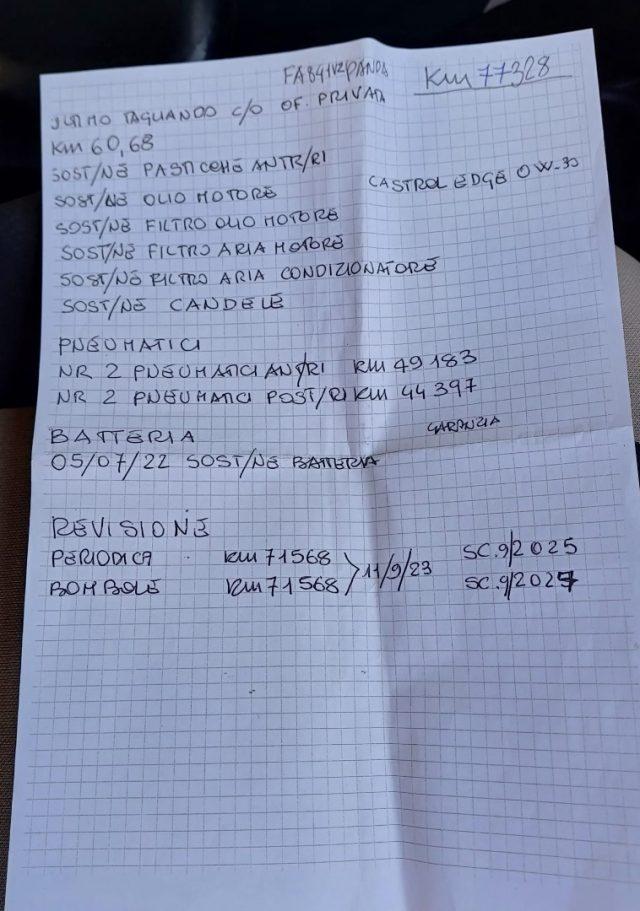 FA841VZ PANDA
Km 77328
ULTIMO TAGLIANDO C/O OF. PRIVATA
Km 60,68
SOST/NE PASTICCHE ANTR/RI
SOST/NE OLIO MOTORE CASTROL EDGE 0W-30
SOST/NE FILTRO OLIO MOTORE
SOST/NE FILTRO ARIA MOTORE
SOST/NE FILTRO ARIA CONDIZIONATORE
SOST/NE CANDELE
PNEUMATICI
NR 2 PNEUMATICI AN/RI Km 49183
NR 2 PNEUMATICI POST/RI Km 44397
BATTERIA GARANZIA
05/07/22 SOST/NE BATTERIA
REVISIONE
PERIODICA Km 71568 SC. 9/2025
11/9/23
BOMBOLE Km 71568 SC. 9/2027